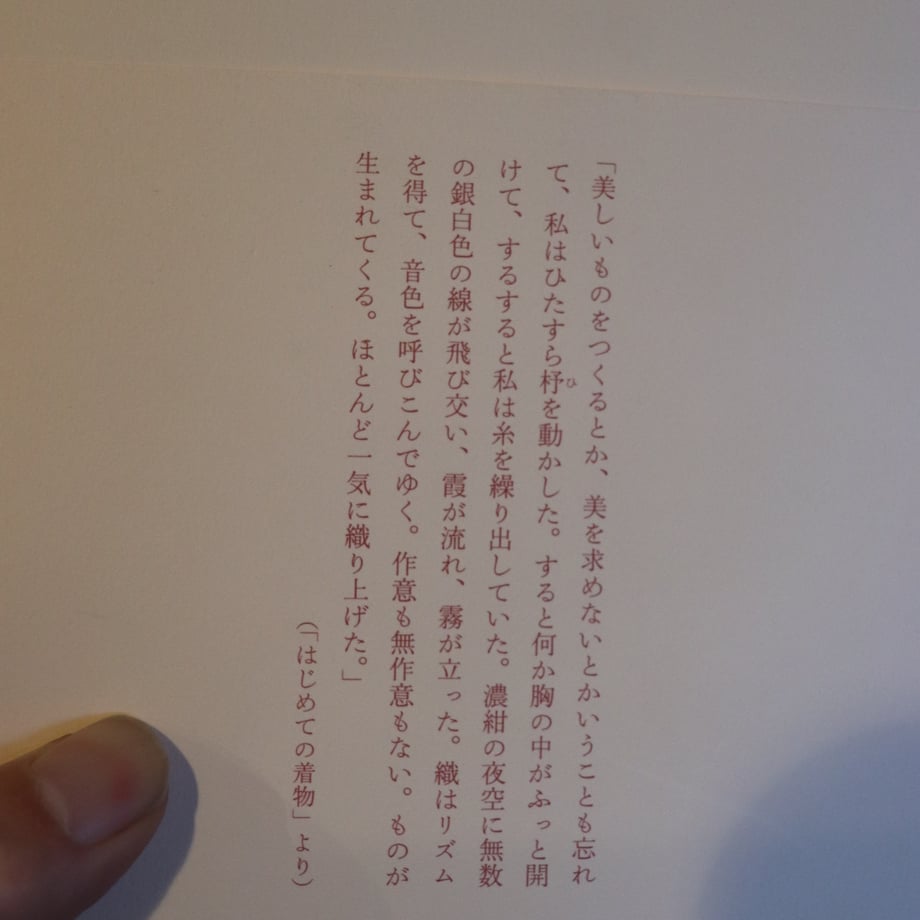 「美しいものをつくるとか、美を求めないとかいうことも忘れ
て、私はひたすら杼を動かした。すると何か胸の中がふっと開
けて、するすると私は糸を繰り出していた。濃紺の夜空に無数
の銀白色の線が飛び交い、霞が流れ、霧が立った。織はリズム
を得て、音色を呼びこんでゆく。作意も無作意もない。ものが
生まれてくる。ほとんど一気に織り上げた。」
（「はじめての着物」より）